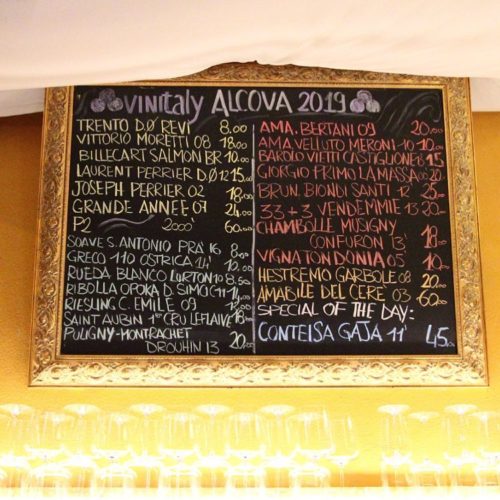 VINITALY ALCOVA 2019
TRENTO D.Ø REVÌ 8.00
VITTORIO MORETTI 08 18.00
BILLECART SALMON BR 10.00
LAURENT PERRIER D.Ø 12 15.00
JOSEPH PERRIER 02 18.00
GRANDE ANNEE 07 24.00
P2 2000' 60.00
SOAVE S. ANTONIO PRÀ 16 8.00
GRECO 110 OSTRICA 14 10.00
RUEDA BLANCO LURTON 10 8.50
RIBOLLA OPOKA D. SIMCIC 11 14.00
RIESLING C. EMILE 09 18.00
SAINT AUBIN 1er CRU LEFLAIVE 16.00
PULIGNY-MONTRACHET
DROUHIN 13 20.00
AMA. BERTANI 09 20.00
AMA VELLUTO MERONI 10 10.00
BAROLO VIETTI CASTIGLIONE 08 15
GIORGIO PRIMO LA MASSA 06 20.
BRUN. BIONDI SANTI 12 25.00
33+3 VENDEMMIE 13 20.00
CHAMBOLLE MUSIGNY
CONFURON 13 18.00
VIGNA TONDONIA 05 10.00
HESTREMO GARBOLE 08 20.00
AMABILE DEL CERÈ 03 60.00
SPECIAL OF THE DAY:
CONTEISA GAJA 11' 45.